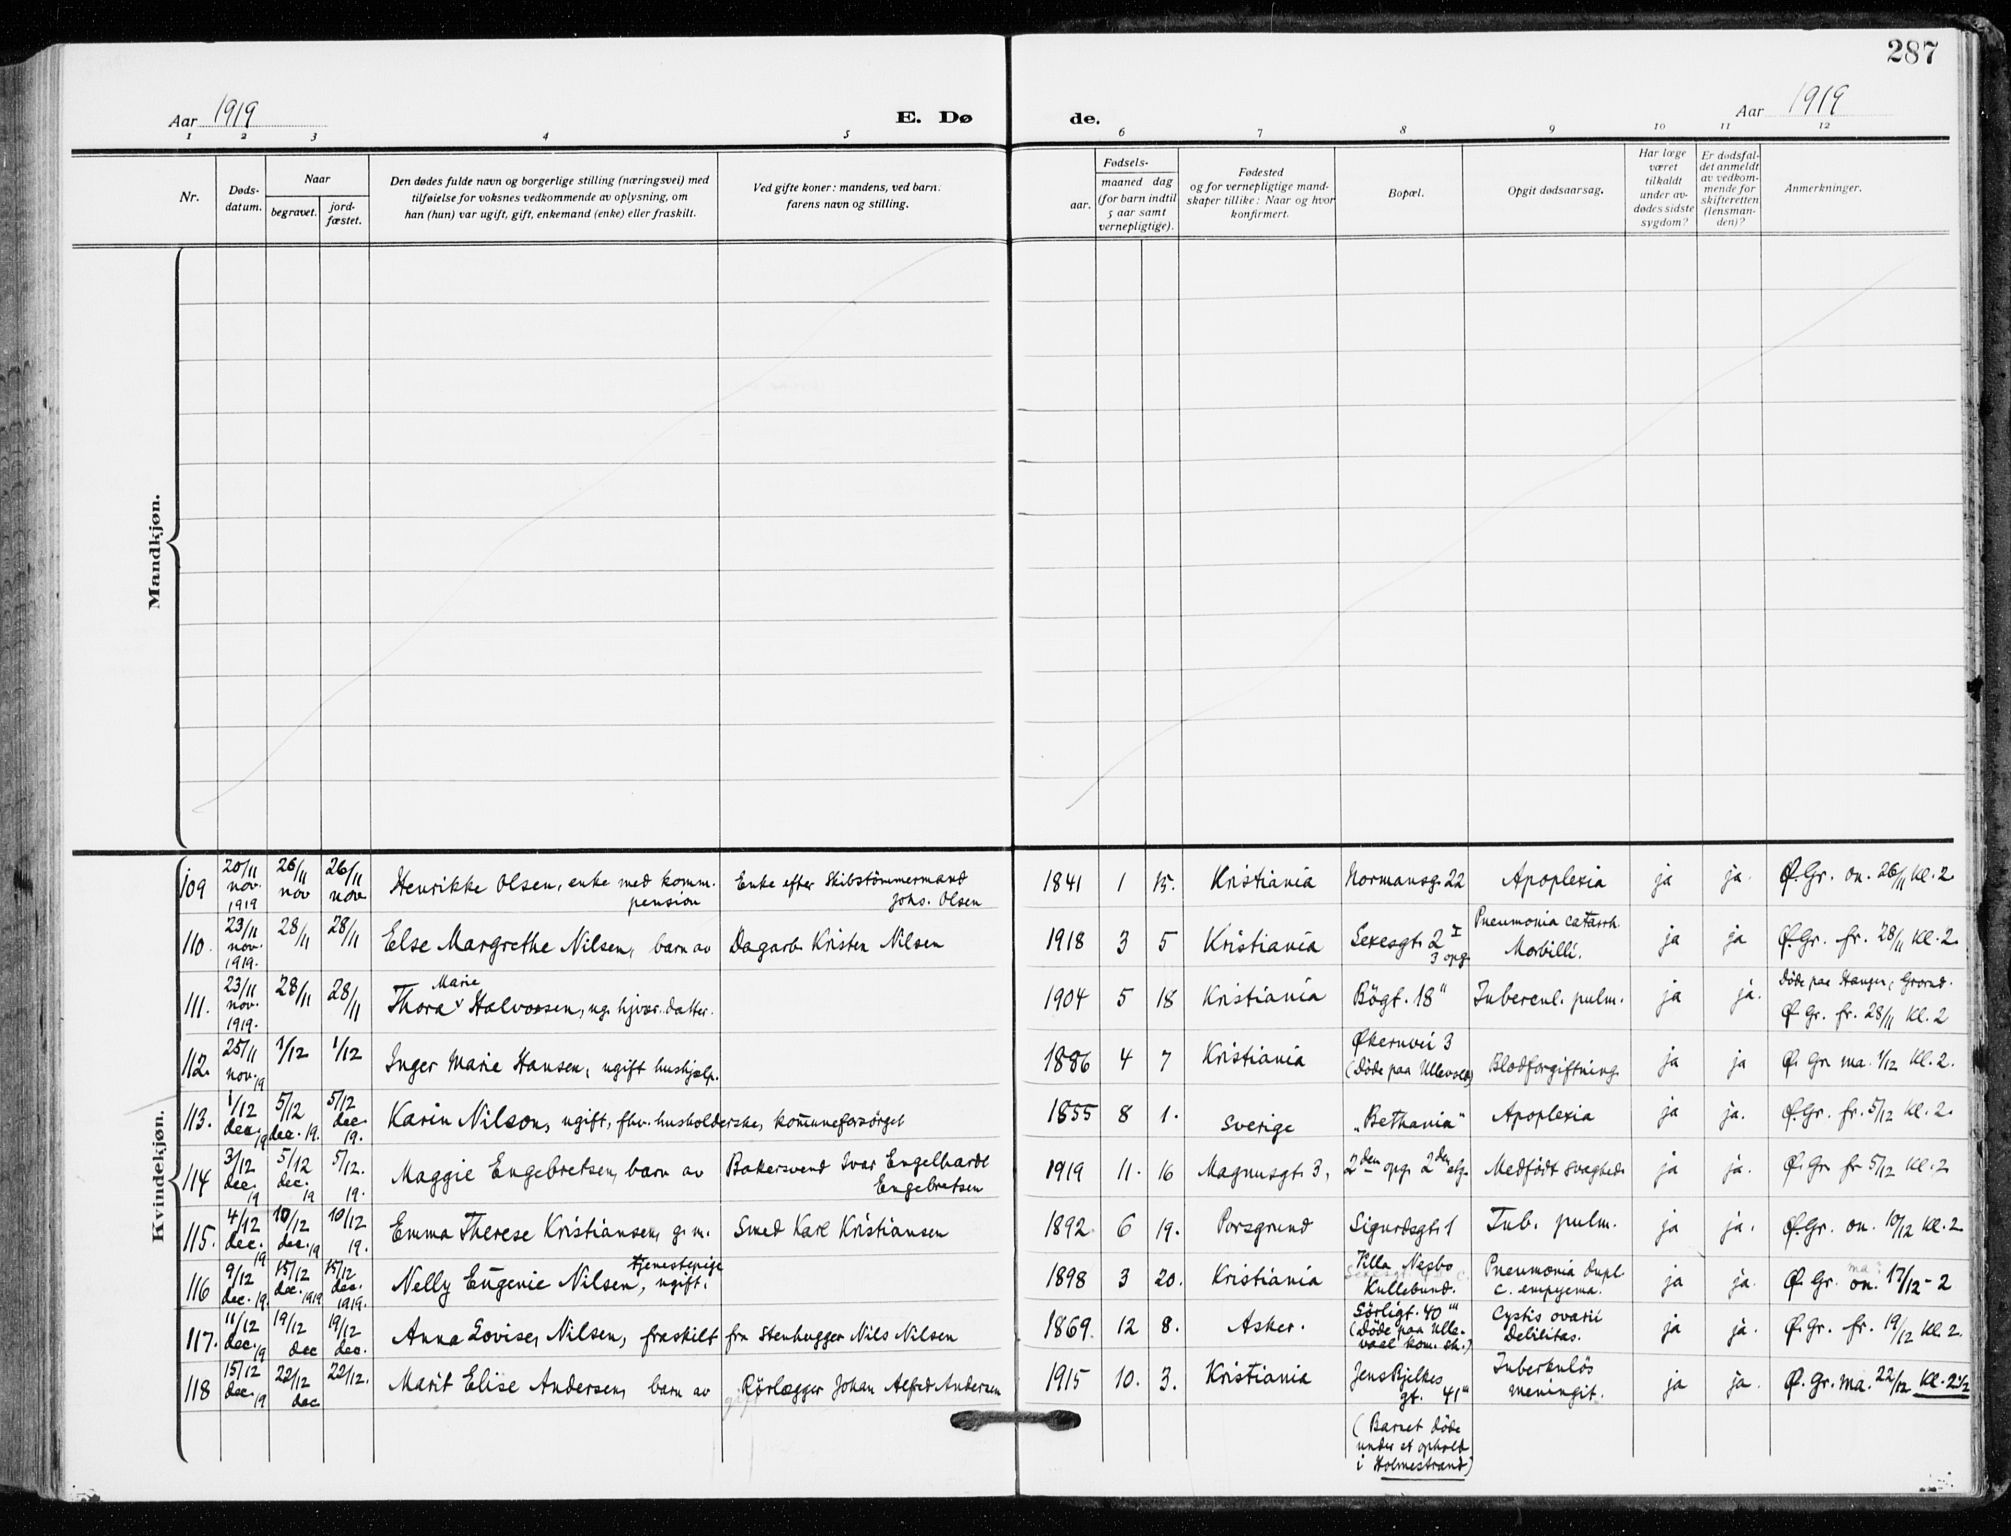 287
Aar 1919
E. Dø
de.
Aar 1919
1 2 3 4 5 6 7 8 9 10 11 12
Nr.
Døds-
datum.
Naar
begravet.
jord-
fæstet.
Den dødes fulde navn og borgerlige stilling (næringsvei) med
tilføielse for voksnes vedkommende av oplysning, om
han (hun) var ugift, gift, enkemand (enke) eller fraskilt.
Ved gifte koner: mandens, ved barn:
farens navn og stilling.
Fødsels-
aar.
maaned dag
(for barn indtil
5 aar samt
vernepligtige).
Fødested
og for vernepligtige mand-
skaper tillike: Naar og hvor
konfirmert.
Bopæl.
Opgit dødsaarsag.
Har læge
været
tilkaldt
under av-
dødes sidste
sygdom?
Er dødsfal-
det anmeldt
av vedkom-
mende for
skifteretten
(lensman-
den)?
Anmerkninger.
Mandkjøn.
Kvindekjøn.
109 20/11 nov. 1919 26/11 nov 26/11 nov Henrikke Olsen, enke med komm. pension Enke efter Skibstömmermand Johs. Olsen 1841 1 15. Kristiania Normansg. 22 Apoplexia ja ja. Ø. Gr. on. 26/11 Kl. 2
110. 23/11 nov. 1919. 28/11 28/11 Else Margrethe Nilsen, barn av Dagarb. Kristen Nilsen 1918 3 5 Kristiania Sexesgt. 2 I 3 opg. Pneumonia catarrh. Morbilli. ja ja Ø. Gr. fr. 28/11 Kl. 2.
111. 23/11 nov. 1919. 28/11 28/11 Thora v Marie Halvorsen, ug. hjvær. datter. 1904 5 18 Kristiania Bögt. 18" Tubercul. pulm. ja ja. Döde paa Ø. Gr. fr. 28/11 Kl. 2
112. 25/11 nov. 19 1/12 1/12 Inger Marie Hansen, ugift hushjælp. 1886 4 7 Kristiania Økernvei 3 (Döde paa Ullevold) Blodforgiftning. ja ja Ø. Gr. ma. 1/12 Kl. 2.
113. 1/12 dec. 19 5/12 dec. 19. 5/12 dec. 19. Karin Nilson, ugift, fhv. husholderske, kommuneforsörget 1855 8 1. Sverige "Bethania" Apoplexia ja ja. Ø. Gr. fr. 5/12 Kl. 2.
114 3/12 dec. 19 5/12 dec. 19 5/12. 19. Maggie Engebretsen, barn av Bakersvend Ivar Engelhardt Engebretsen 1919 11. 16 Magnusgt. 3, 2den opg. 2den etg. Medfödt svaghed. ja ja. Ø. Gr. fr 5/12 Kl. 2
115. 4/12 dec. 19 10/12 dec. 19 10/12 19. Emma Therese Kristiansen, g. m. Smed Karl Kristiansen 1892 6 19. Porsgrund Sigurdsgt. 1 Tub. pulm. ja ja. Ø. Gr. on. 10/12 Kl. 2
116 9/12 dec. 19. 15/12 dec. 1919 15/12 dec. 1919. Nelly Eugenie Nilsen, tjenestepige ugift. 1898 3 20. Kristiania Villa Nesbo Kullebund. Pneumonia dupl. c. empyema. ja ja. Ø. Gr. ma: on. 17/12 - 2
117. 11/12 dec. 19 19/12 dec 19/12 dec. Anna Lovise, Nilsen, fraskilt fra Stenhugger Nils Nilsen 1869. 12 8. Asker. Sörligt. 40 "' (Döde paa Ulle- vaal kom. sh.) Cystis ovarii Debilitas. ja ja. Ø. Gr. fr. 19/12 Kl. 2.
118 15/12 dec. 19 22/12 dec 22/12. Marit Elise Andersen, barn av Rörlægger Johan Alfred Andersen 1915 10. 3. Kristiania Jens Bjelkes gt. 41" Tuberkulös meningit. ja ja. Ø. Gr. ma. 22/12 Kl. 2 1/2
(Barnet döde
under et ophold
i Holmestrand)